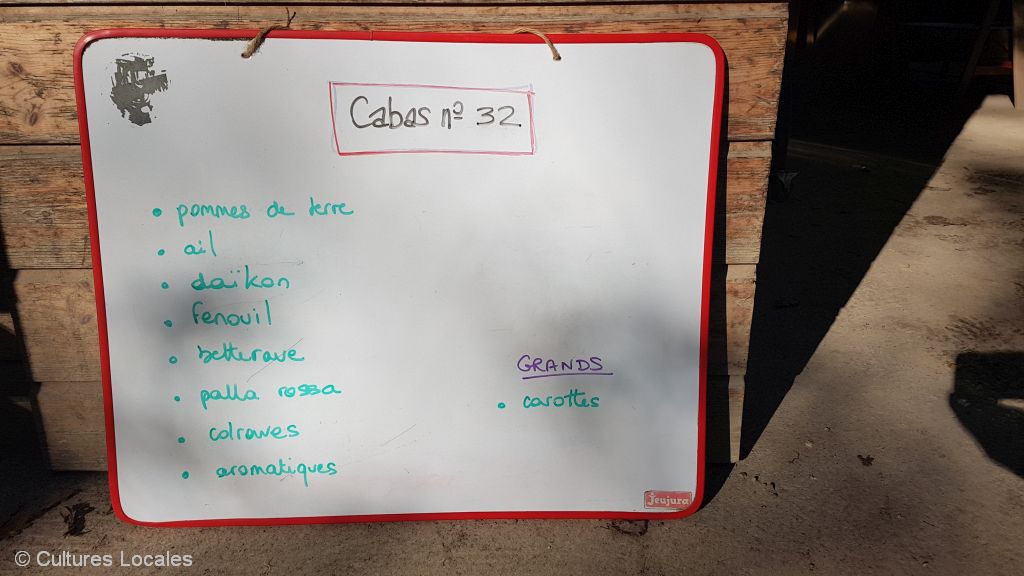 Cabas nº 32
• pommes de terre
• ail
• daïkon
• fenouil
• betterave
• palla rossa
• colraves
• aromatiques
GRANDS
• carottes
Jeujura
© Cultures Locales